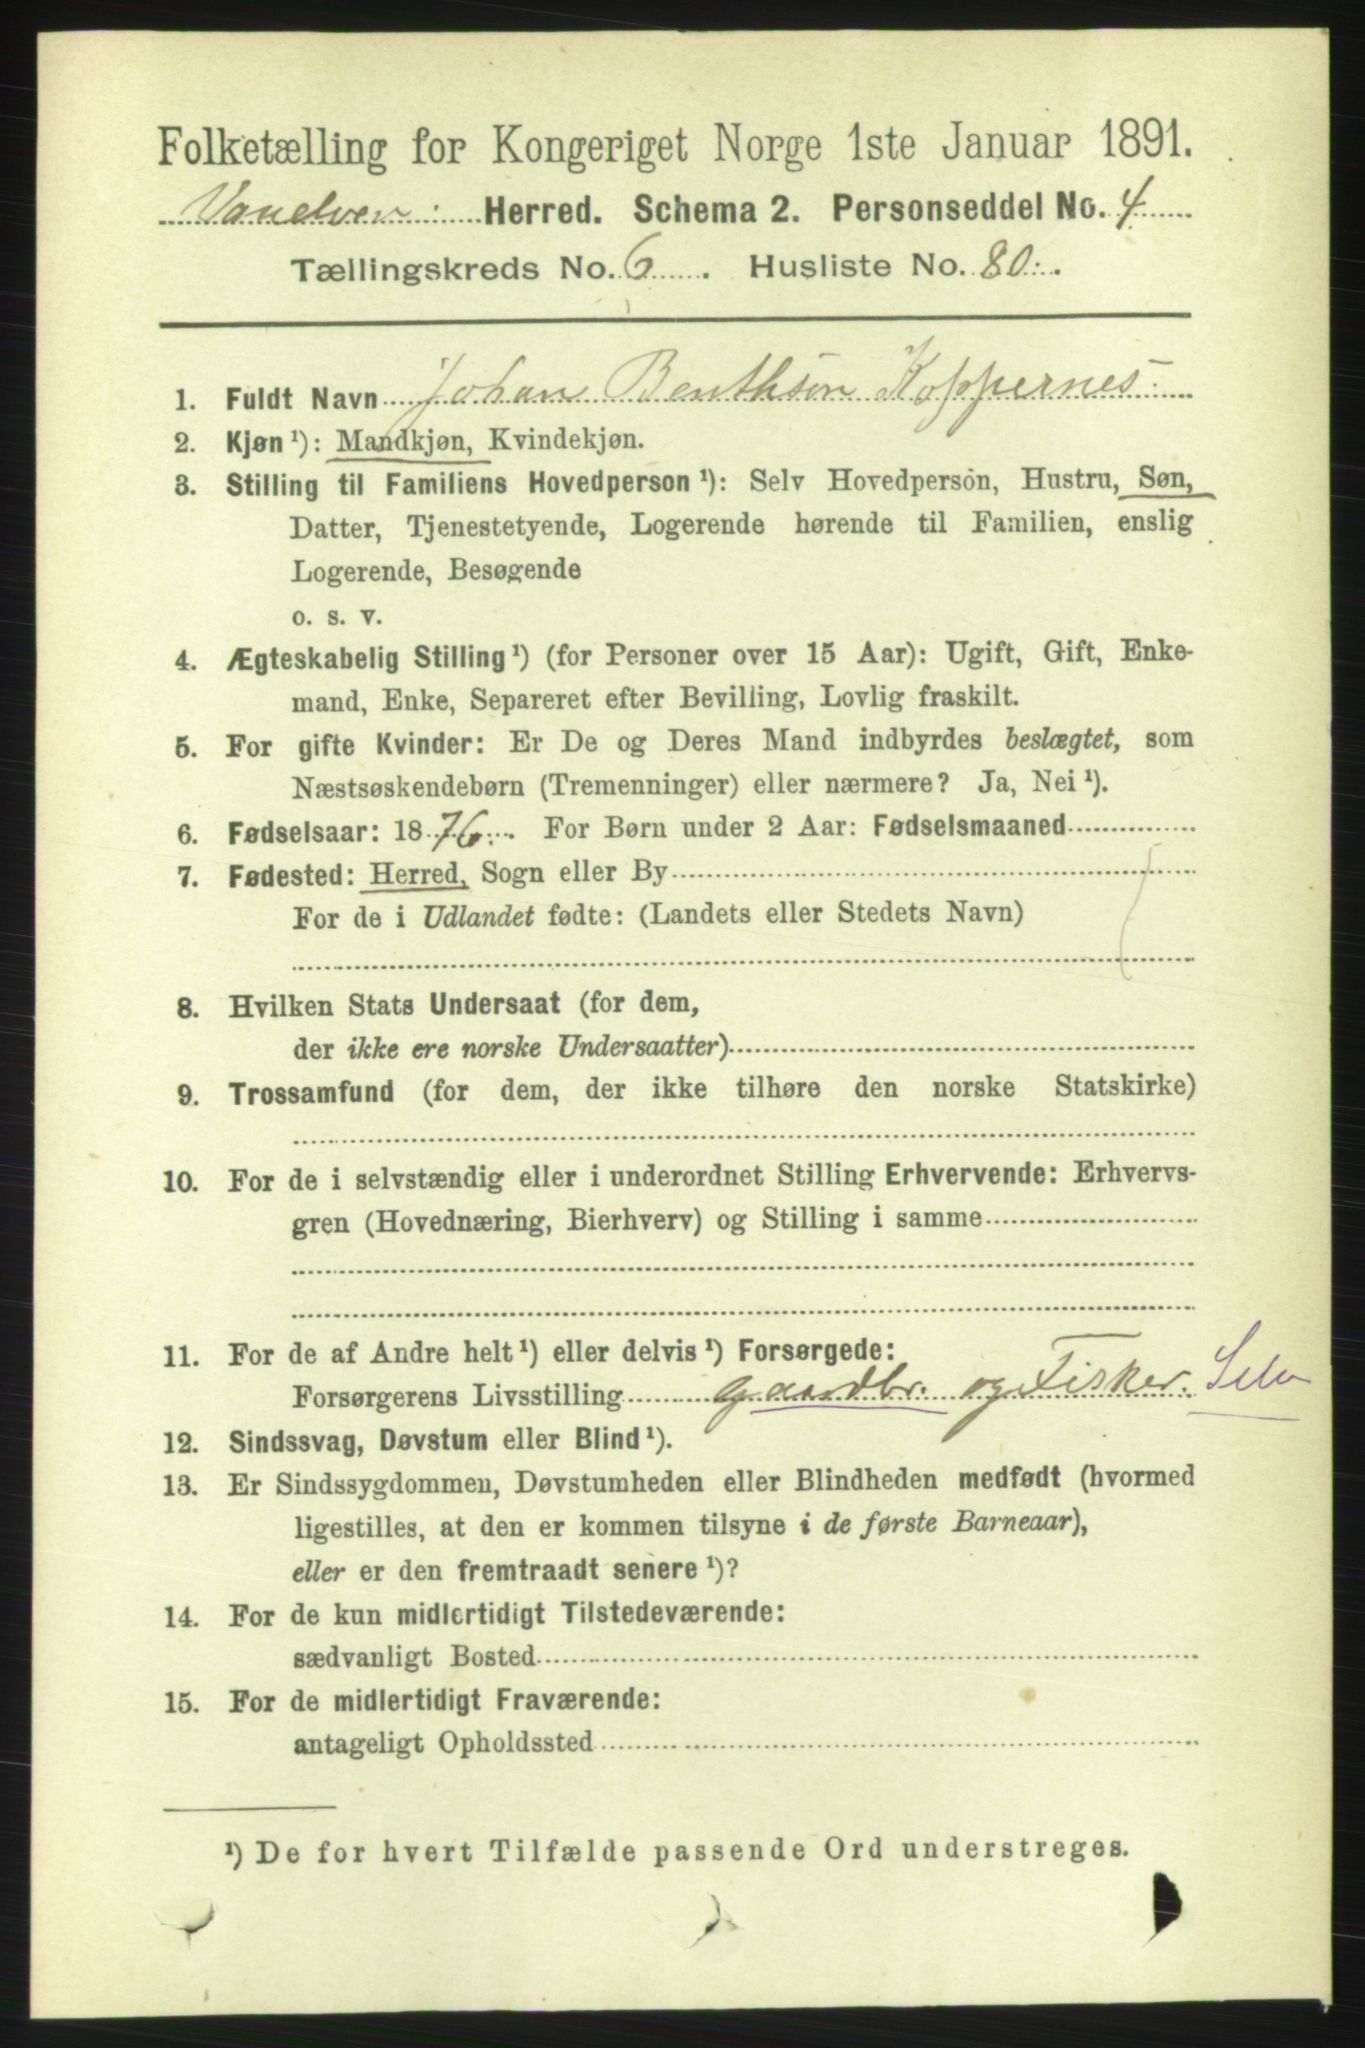 Folketælling for Kongeriget Norge 1ste Januar 1891.
Vanelven Herred. Schema 2. Personseddel No. 4
Tællingskreds No. 6. Husliste No. 80.
1. Fuldt Navn Johan Benthsøn Koppernes.
2. Kjøn ¹): Mandkjøn, Kvindekjøn.
3. Stilling til Familiens Hovedperson ¹): Selv Hovedperson, Hustru, Søn,
Datter, Tjenestetyende, Logerende hørende til Familien, enslig
Logerende, Besøgende
o. s. v.
4. Ægteskabelig Stilling ¹) (for Personer over 15 Aar): Ugift, Gift, Enke-
mand, Enke, Separeret efter Bevilling, Lovlig fraskilt.
5. For gifte Kvinder: Er De og Deres Mand indbyrdes beslægtet, som
Næstsøskendebørn (Tremenninger) eller nærmere? Ja, Nei ¹).
6. Fødselsaar: 1876. For Børn under 2 Aar: Fødselsmaaned
7. Fødested: Herred, Sogn eller By
For de i Udlandet fødte: (Landets eller Stedets Navn)
8. Hvilken Stats Undersaat (for dem,
der ikke ere norske Undersaatter)
9. Trossamfund (for dem, der ikke tilhøre den norske Statskirke)
10. For de i selvstændig eller i underordnet Stilling Erhvervende: Erhvervs-
gren (Hovednæring, Bierhverv) og Stilling i samme
11. For de af Andre helt ¹) eller delvis ¹) Forsørgede:
Forsørgerens Livsstilling gaardbr. og Fisker. Selv
12. Sindssvag, Døvstum eller Blind ¹).
13. Er Sindssygdommen, Døvstumheden eller Blindheden medfødt (hvormed
ligestilles, at den er kommen tilsyne i de første Barneaar),
eller er den fremtraadt senere ¹)?
14. For de kun midlertidigt Tilstedeværende:
sædvanligt Bosted
15. For de midlertidigt Fraværende:
antageligt Opholdssted
¹) De for hvert Tilfælde passende Ord understreges.